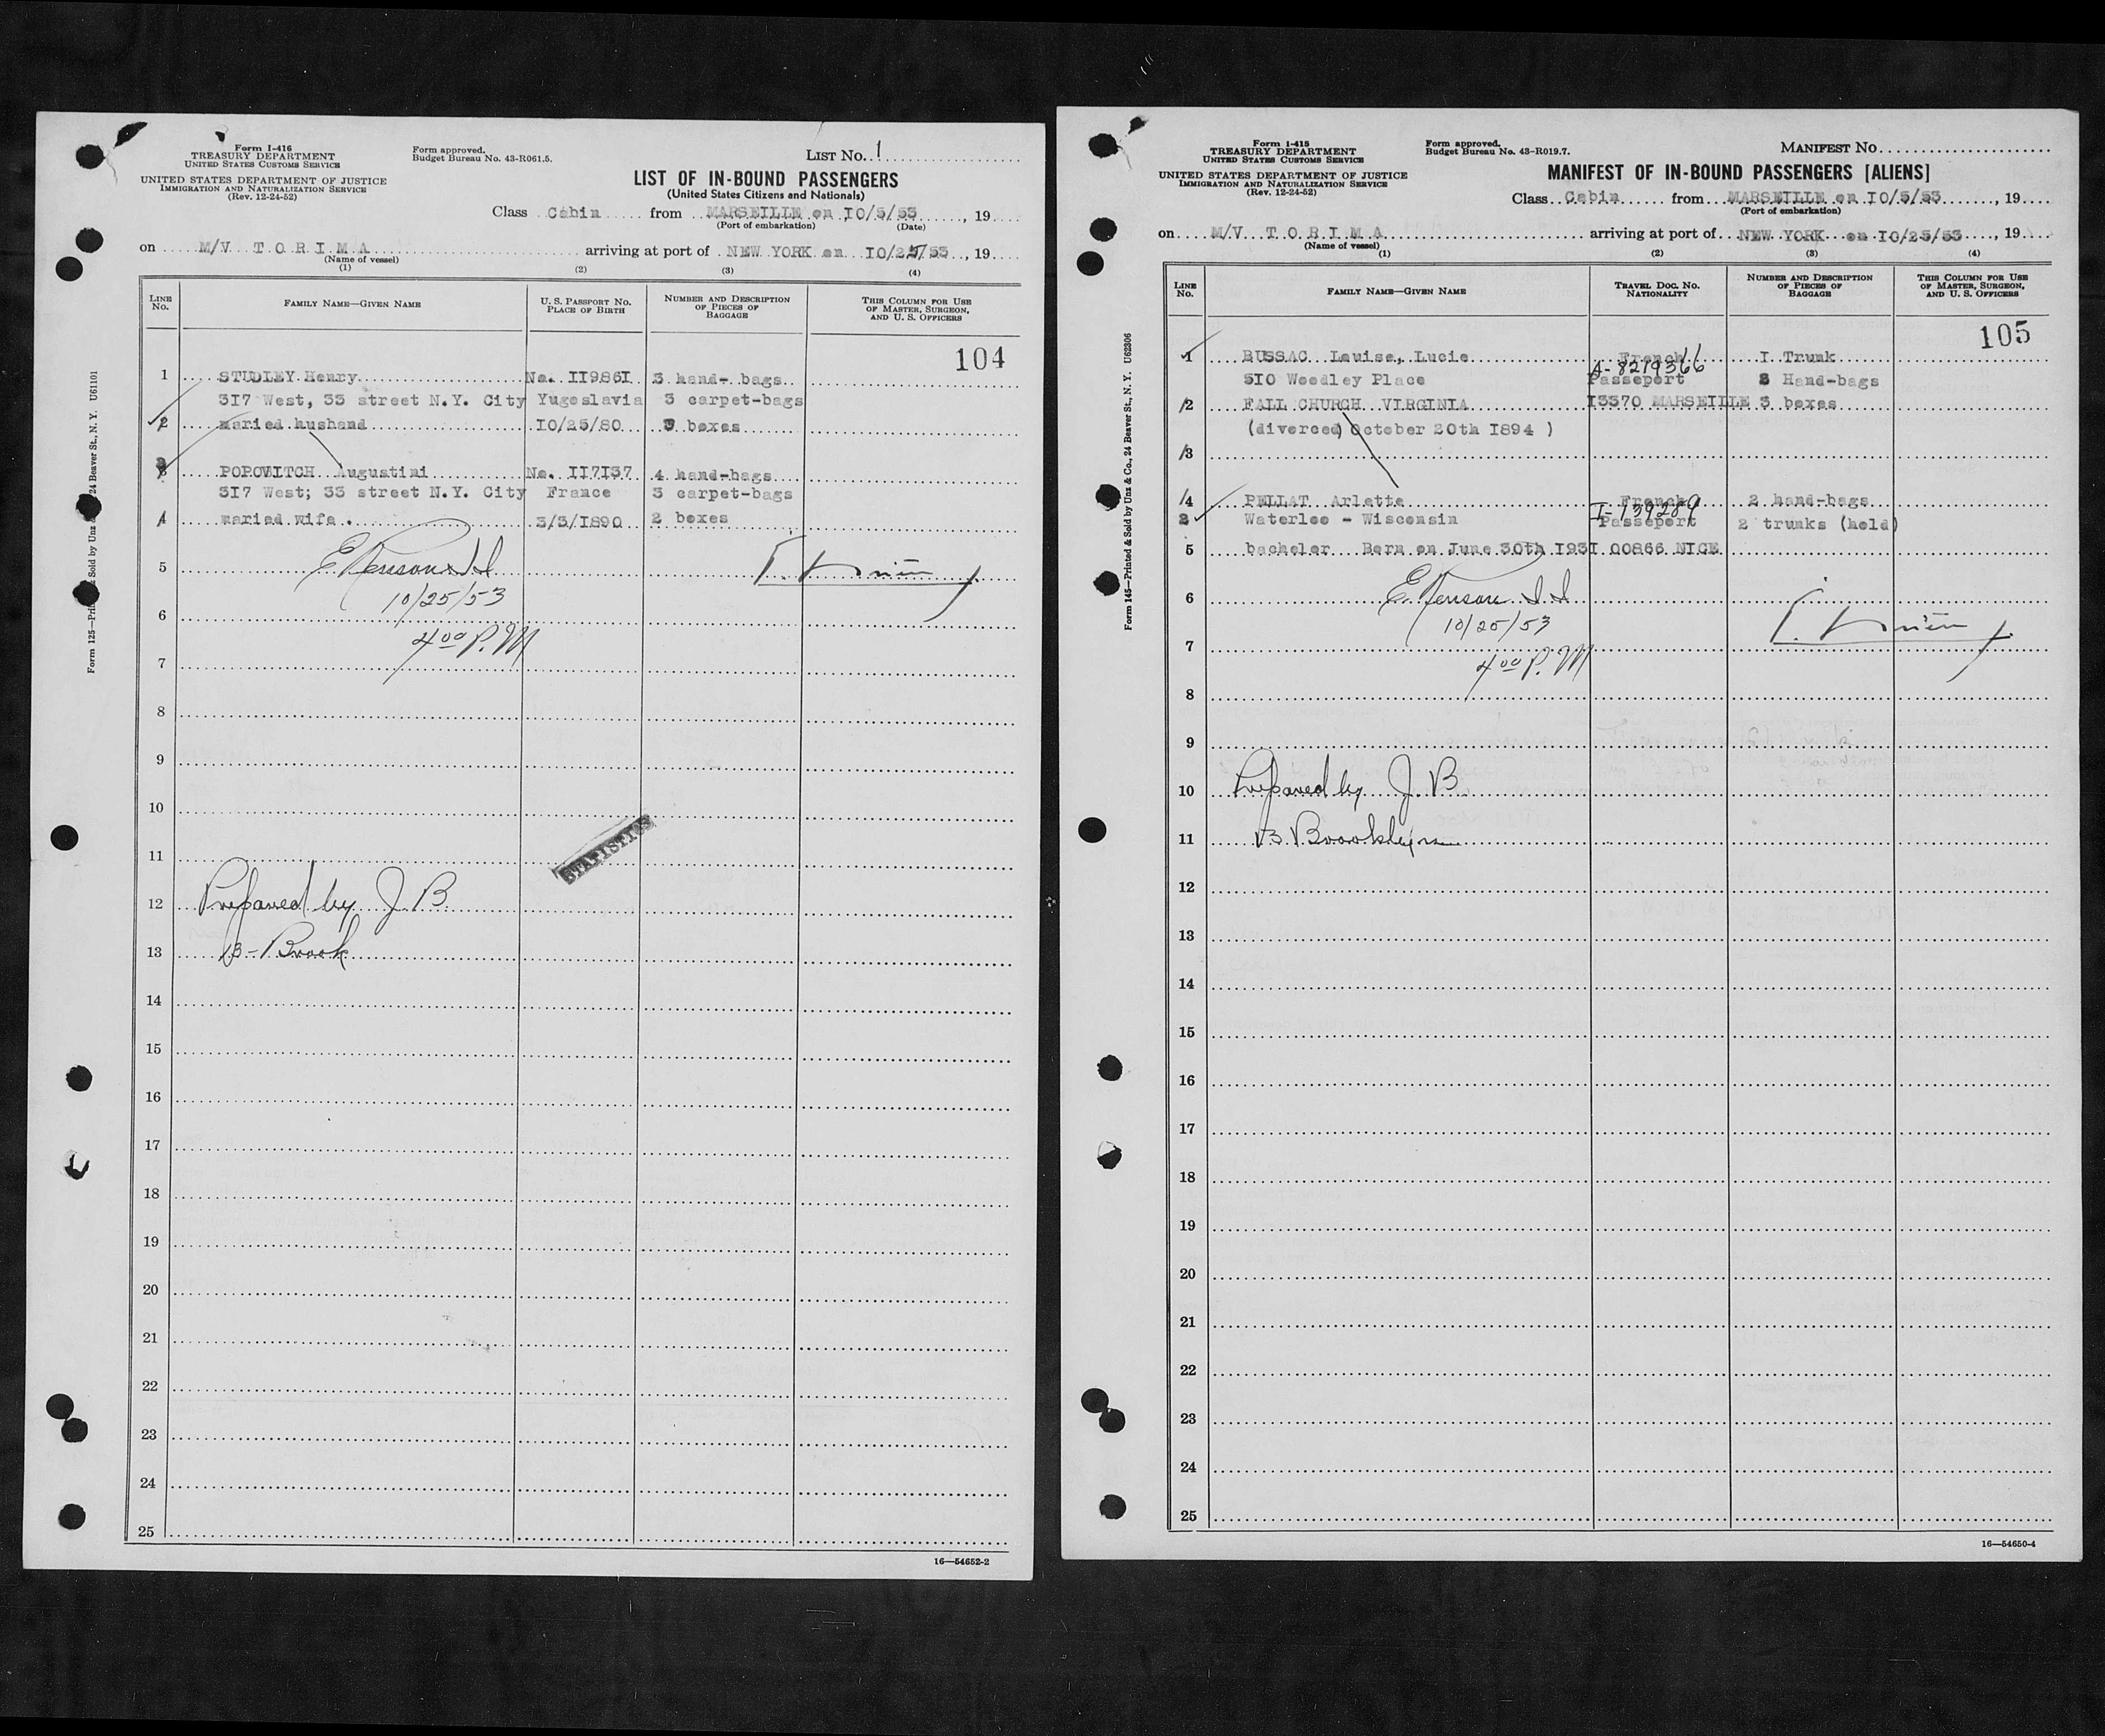 Form I-416
TREASURY DEPARTMENT
UNITED STATES CUSTOMS SERVICE
UNITED STATES DEPARTMENT OF JUSTICE
IMMIGRATION AND NATURALIZATION SERVICE
(Rev. 12-24-52)
Form approved.
Budget Bureau No. 43-R061.5.
LIST No. 1
LIST OF IN-BOUND PASSENGERS
(United States Citizens and Nationals)
Class Cabin from MARSEILLE on IO/5/53, 19
(Port of embarkation) (Date)
on M/V T O R I M A arriving at port of NEW YORK on IO/25/53, 19
(Name of vessel)
(1) (2) (3) (4)
LINE No. FAMILY NAME—GIVEN NAME U. S. PASSPORT No. PLACE OF BIRTH NUMBER AND DESCRIPTION OF PIECES OF BAGGAGE THIS COLUMN FOR USE OF MASTER, SURGEON, AND U. S. OFFICERS
104
1 STUDLEY Henry No. II986I 3 hand- bags
3I7 West, 33 street N.Y. City Yugoslavia 3 carpet-bags
2 maried husband IO/25/80 boxes
3 POPOVITCH Augustini No. II7I37 4 hand-bags
3I7 West; 33 street N.Y. City France 3 carpet-bags
4 maried wife . 3/3/I890 2 boxes
5
10/25/53
6
4 00 P.M
7
8
9
10
STATISTICS
11
12 Prepared by J. B.
13 B-Brook
14
15
16
17
18
19
20
21
22
23
24
25
16—54652-2
Form I-415
TREASURY DEPARTMENT
UNITED STATES CUSTOMS SERVICE
UNITED STATES DEPARTMENT OF JUSTICE
IMMIGRATION AND NATURALIZATION SERVICE
(Rev. 12-24-52)
Form approved.
Budget Bureau No. 43-R019.7.
MANIFEST No.
MANIFEST OF IN-BOUND PASSENGERS [ALIENS]
Class Cabin from MARSEILLE on IO/5/53, 19
(Port of embarkation)
on M/V T O R I M A arriving at port of NEW YORK on IO/25/53, 19
(Name of vessel)
(1) (2) (3) (4)
LINE No. FAMILY NAME—GIVEN NAME TRAVEL DOC. No. NATIONALITY NUMBER AND DESCRIPTION OF PIECES OF BAGGAGE THIS COLUMN FOR USE OF MASTER, SURGEON, AND U. S. OFFICERS
105
1 BUSSAC Louise, Lucie French I Trunk
A-8219366
5IO Woodley Place Passeport Hand-bags
2 FALL CHURCH VIRGINIA I3370 MARSEILLE 3 boxes
(divorced) October 20th I894 )
3
4 PELLAT Arlette French 2 hand-bags
I-139289
2 Waterloo - Wisconsin Passeport 2 trunks (hold)
5 bachelor Born on June 30th I93I 00866 NICE
6
10/25/53
7
4 00 P.M
8
9
10 Prepared by J. B.
11 B. Brooklyn
12
13
14
15
16
17
18
19
20
21
22
23
24
25
16—54650-4
Form 145—Printed & Sold by Unz & Co., 24 Beaver St., N. Y. U62306